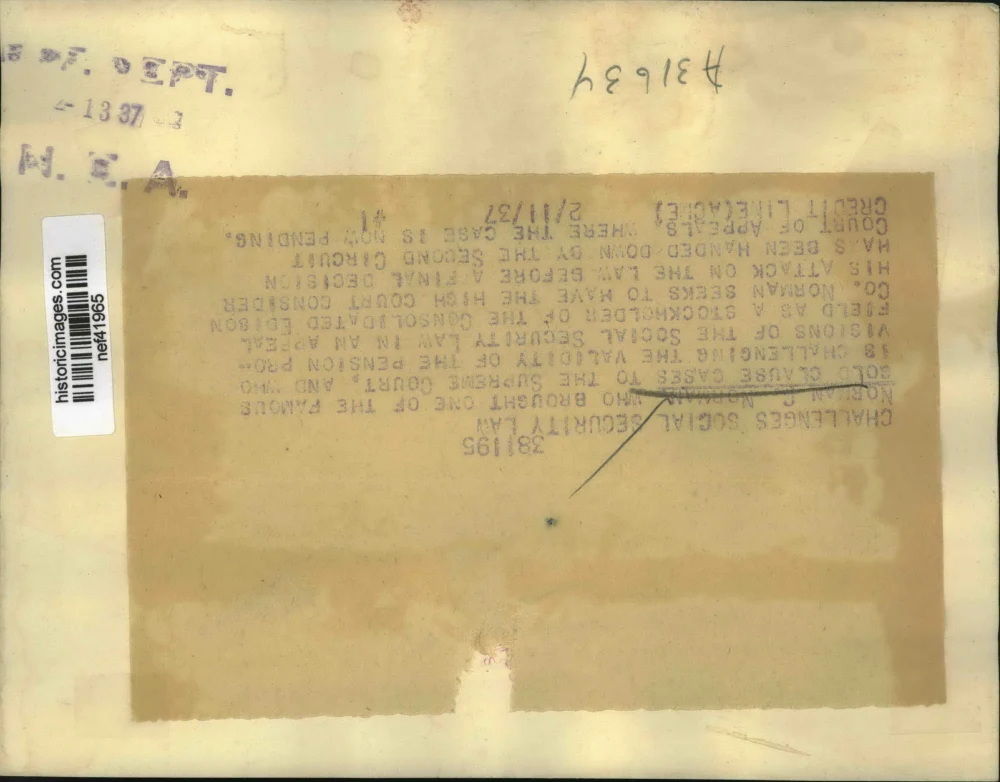 DEPT.
-13 37
N. E. A.
A31634
historicimages.com
nef41965
381195
CHALLENGES SOCIAL SECURITY LAW
NORMAN C. NORMAN, WHO BROUGHT ONE OF THE FAMOUS
GOLD CLAUSE CASES TO THE SUPREME COURT, AND WHO
IS CHALLENGING THE VALIDITY OF THE PENSION PRO-
VISIONS OF THE SOCIAL SECURITY LAW IN AN APPEAL
FIELD AS A STOCKHOLDER OF THE CONSOLIDATED EDISON
CO. NORMAN SEEKS TO HAVE THE HIGH COURT CONSIDER
HIS ATTACK ON THE LAW BEFORE A FINAL DECISION
HAS BEEN HANDED DOWN BY THE SECOND CIRCUIT
COURT OF APPEALS, WHERE THE CASE IS NOW PENDING.
CREDIT LINE(ACME) 2/11/37